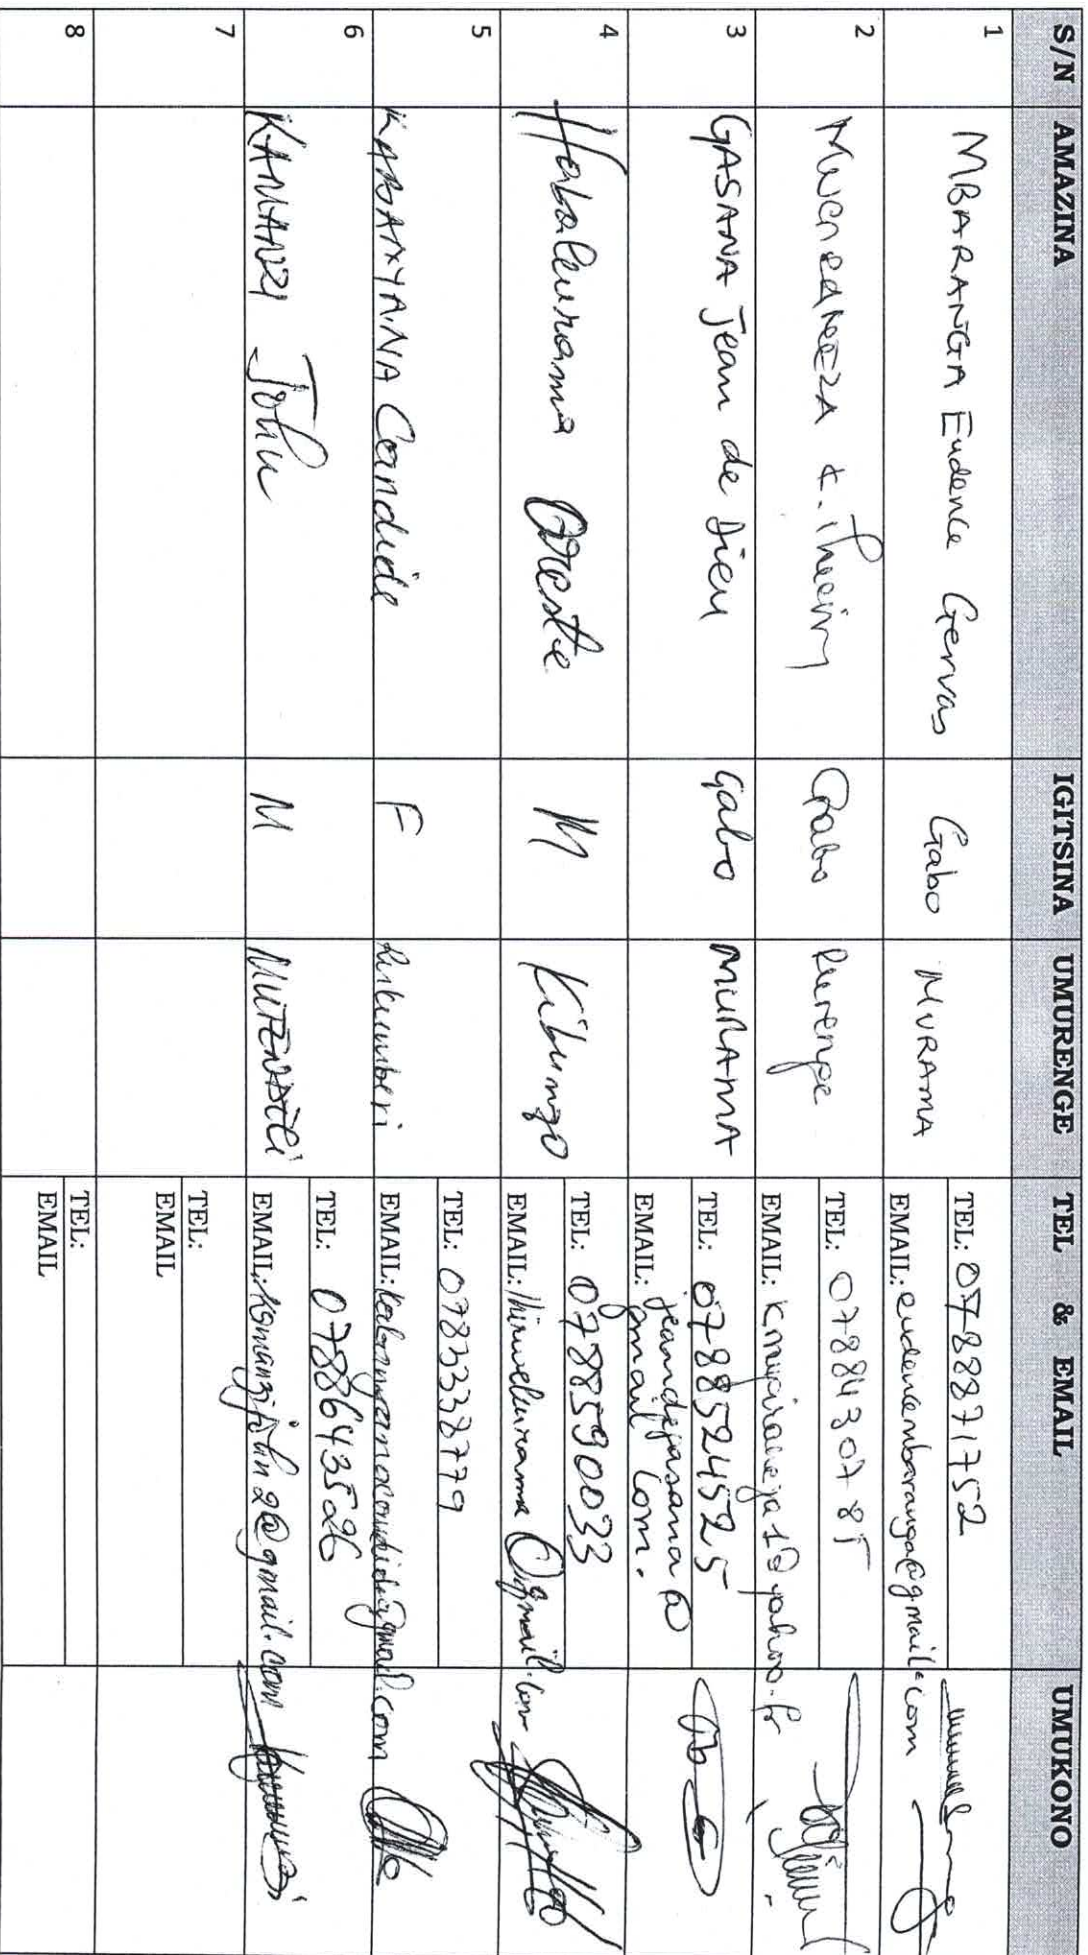 S/N AMAZINA IGITSINA UMURENGE TEL & EMAIL UMUKONO
1 MBARANGA Eudence Gervas Gabo MURAMA TEL: 0788871752
EMAIL: eudencembaranga@gmail.com
2 Gabo Rurenge TEL: 0788430785
EMAIL: @yahoo.fr
3 GASANA Jean de Dieu Gabo MURAMA TEL: 0788524525
EMAIL: jeandegasana@
gmail com.
4 Habakurama Oreste M Kibungo TEL: 0788590033
EMAIL: @gmail.com
5 KABAMYANA Candide F Rukumberi TEL: 0783338779
EMAIL: @gmail.com
6 KAMANZI John M MUTENDELI TEL: 0788643526
EMAIL: kamanzijohn2@gmail.com
7 TEL:
EMAIL
8 TEL:
EMAIL